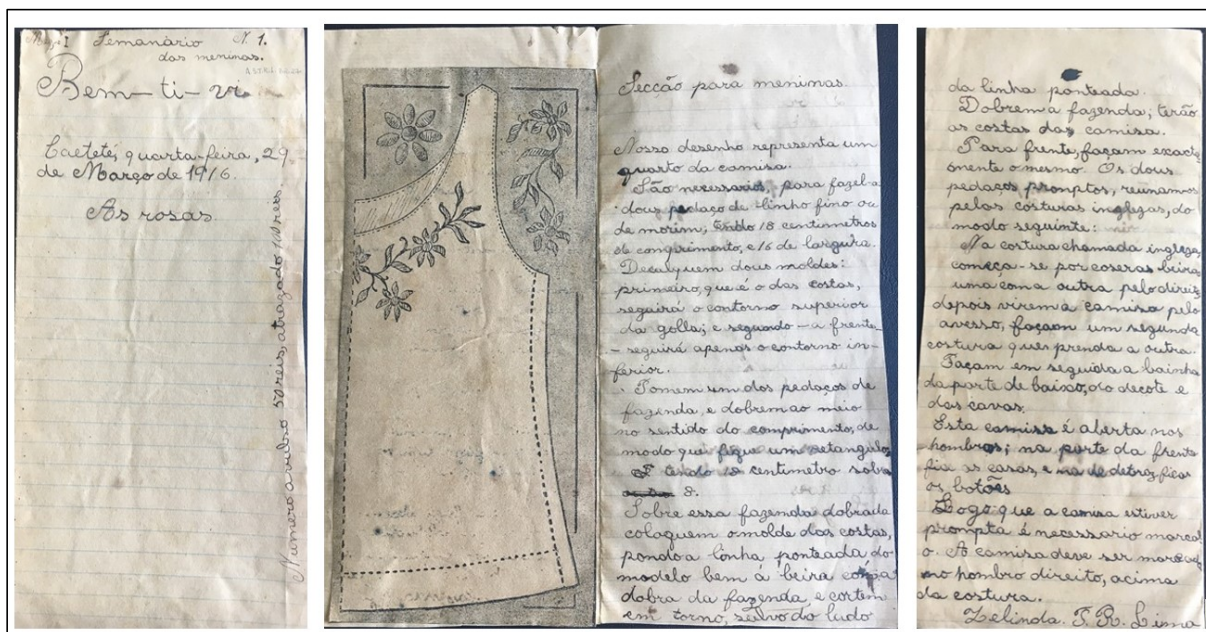 Semanário N. 1.
das meninas.
Bem-ti-vi
Caeteté, quarta-feira, 29
de Março de 1916.
As rosas.
Numero avulso 50 reis, atrazado 100 reis
Secção para meninas.
Nosso desenho representa um
quarto da camisa.
São necessarios, para fazel-a
dous pedaço de linho fino ou
de morim, tendo 18 centimetros
de comprimento, e 16 de largura.
Decalquem dous moldes:
primeiro, que é o das costas,
seguirá o contorno superior
da golla; e segundo - a frente
- seguirá apenas o contorno in-
ferior.
Tomem um dos pedaços de
fazenda, e dobrem ao meio
no sentido do comprimento, de
modo que fique um retangulo,
tendo 18 centimetro sobre
8.
Sobre essa fazenda dobrada
coloquem o molde das costas,
pondo a linha ponteada do
modelo bem á beira com a
dobra da fazenda e cortem
em torno, salvo do lado
da linha ponteada.
Dobrem a fazenda; terão
as costas das camisa.
Para frente, façam exact
mente o mesmo. Os dous
pedaços promptos, reunam-os
pelas costuras inglezas, do
modo seguinte:
Na costura chamada ingleza,
começa-se por coser as beiras
uma com a outra pelo direito
depois virem a camisa pelo
avesso, façam um segunda
costura que prenda a outra.
Façam em seguida a bainha
da parte de baixo, do decote e
das cavas.
Esta camisa é aberta nos
hombros; na parte da frente
fia as casas, e na de detraz, ficas
os botões
Logo que a camisa estiver
prompta é necessario marcal
o. A camisa deve ser marcad
no hombro direito, acima
da costura.
Zelinda. T. R. Lima